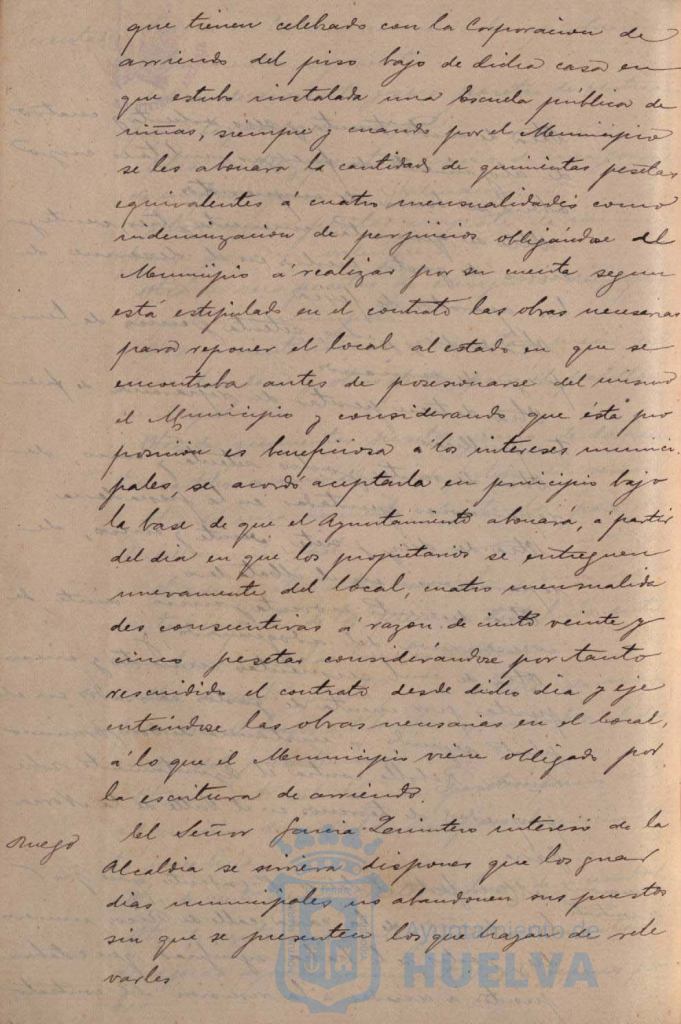 que tienen celebrado con la Corporacion de
arriendo del piso bajo de dicha casa en
que estubo instalada una Escuela pública de
niñas, siempre y cuando por el Municipio
se les abonara la cantidad de quinientas pesetas
equivalentes á cuatro mensualidades como
indemnizacion de perjuicios obligándose el
Municipio á realizar por su cuenta segun
está estipulado en el contrato las obras necesarias
para reponer el local al estado en que se
encontraba antes de posesionarse del mismo
el Municipio y considerando que ésta pro
posición es beneficiosa á los intereses munici-
pales, se acordó aceptarla en principio bajo
la base de que el Ayuntamiento abonará, á partir
del dia en que los propietarios se entreguen
nuevamente del local, cuatro mensualida
des consecutivas á razon de ciento veinte y
cinco pesetas considerándose por tanto
rescindido el contrato desde dicho dia y eje
cutándose las obras necesarias en el local,
á lo que el Municipio viene obligado por
la escritura de arriendo.
Ruego El Señor Garcia Quintero interesó de la
Alcaldia se sirviera disponer que los guar
dias municipales no abandonen sus puestos
sin que se presenten los que hayan de rele
varles
Ayuntamiento de
HUELVA